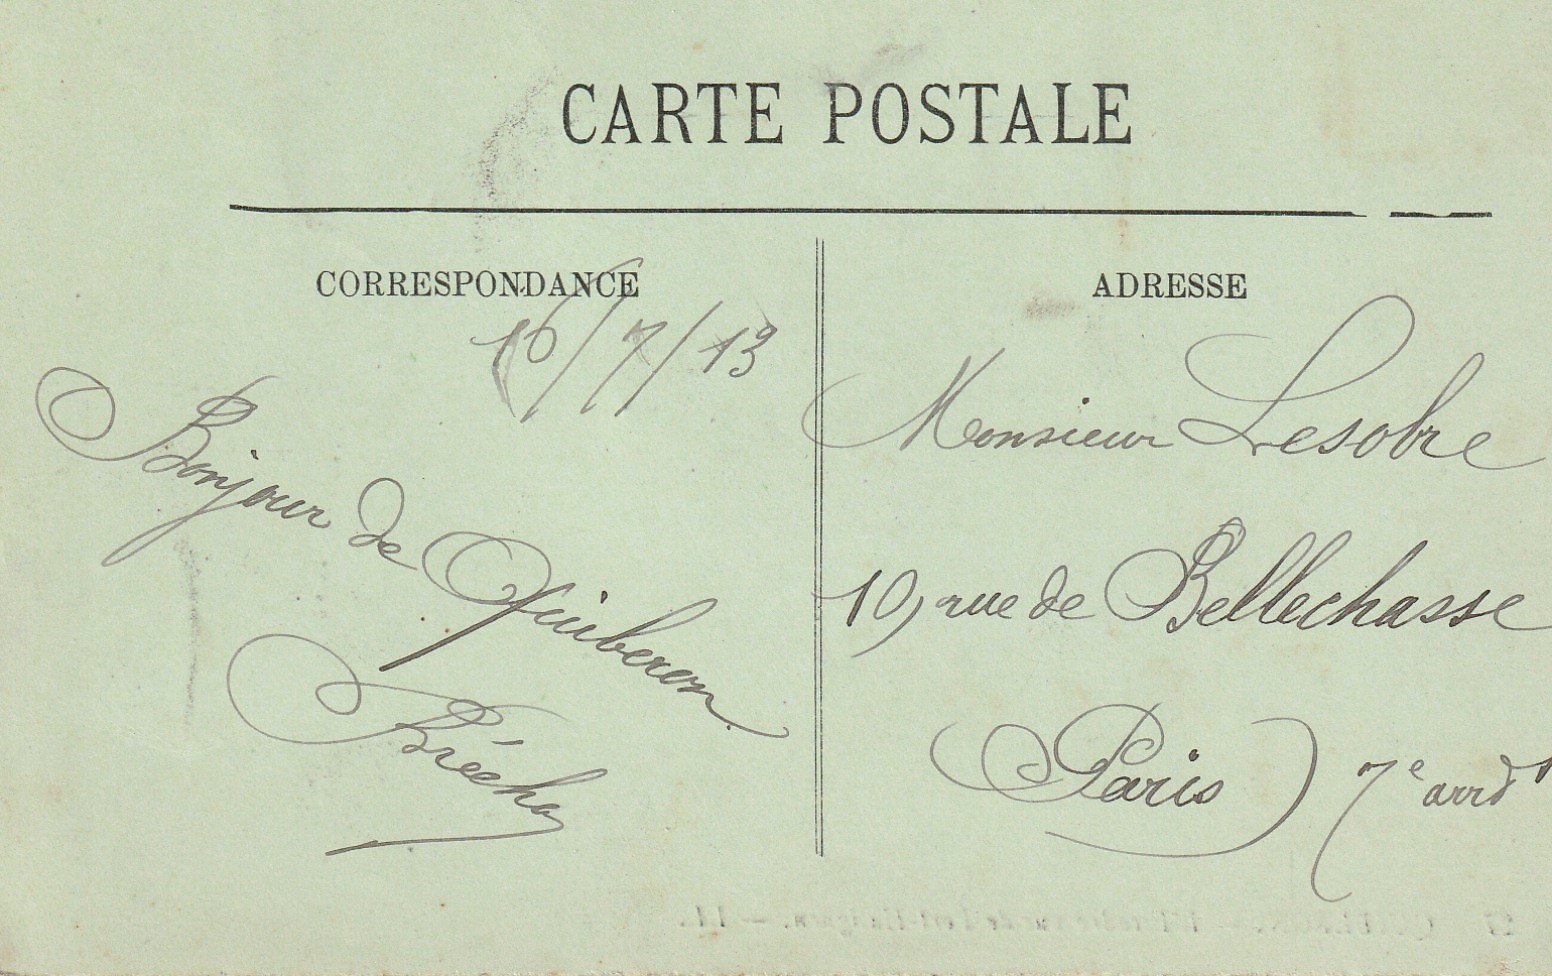 CARTE POSTALE
CORRESPONDANCE
16/7/13
Bonjour de Quiberon
ADRESSE
Monsieur Lesobre
10, rue de Bellechasse
Paris 7e arrdt